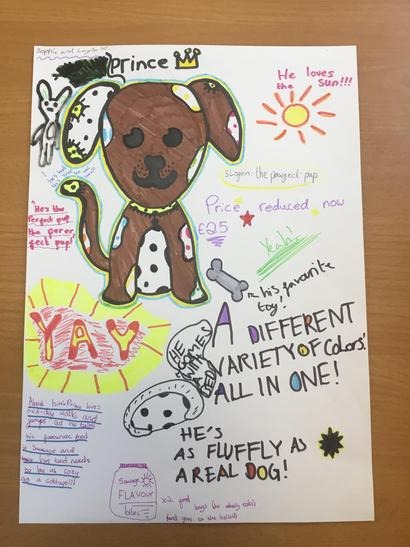 Sophie and
Prince
He loves
the sun!!!
Slogan: the pawfect pup
Price reduced now
£25
Yeah!
"He's the
perfect pup
the perer
fect pup!"
his favourite
toy!
YAY
HE
COMES
WITH A
BED!
A DIFFERENT
VARIETY OF Colors!
ALL IN ONE!
HE'S
AS FLUFFLY AS
A REAL DOG!
About him: Prince loves
mid-day walks and
his favourite food
is Sausage and
his bed needs
to be as cozy
as a cottage!!!
Sausage
FLAVOUR
bites
x2 food
bags (he already eats)
(and goes to the toilet)